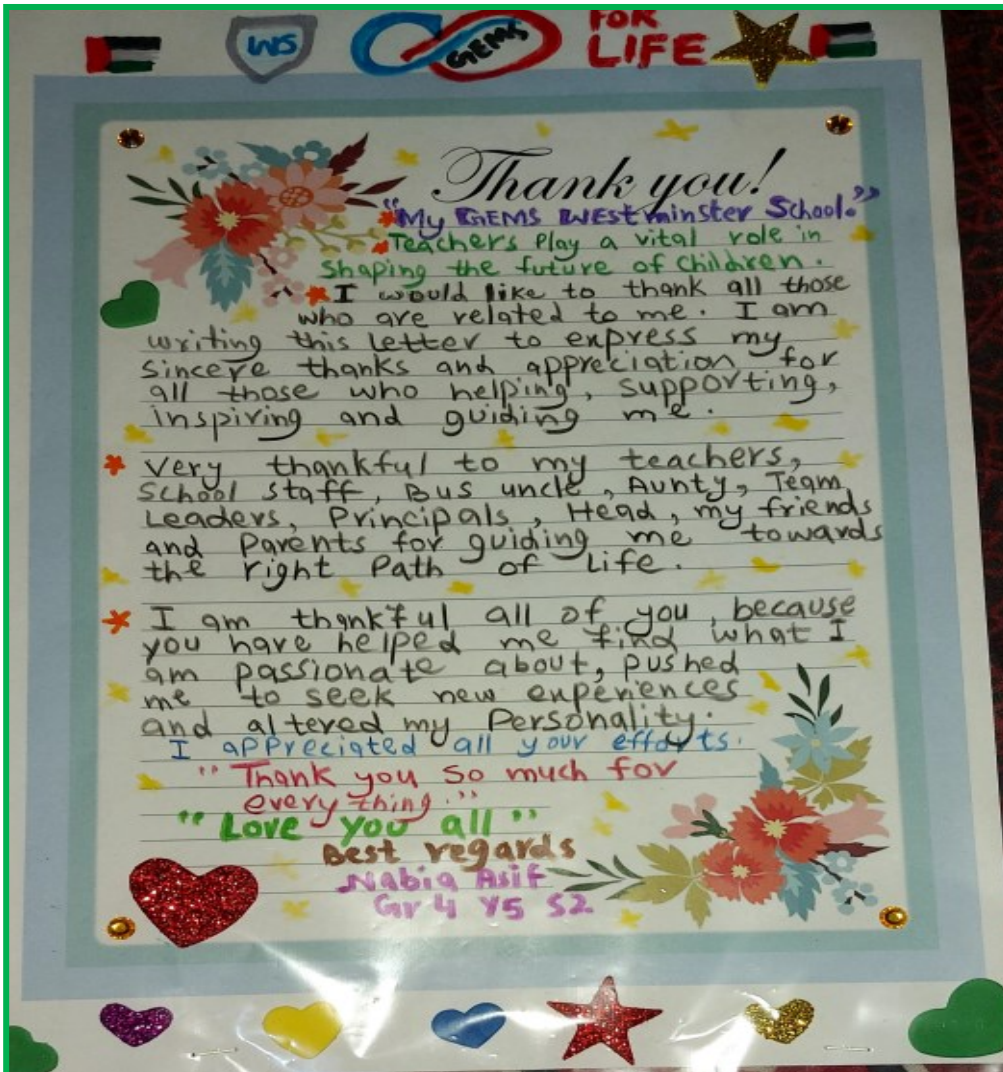 WS
GEMS
FOR
LIFE
Thank you!
"My GEMS Westminster School."
Teachers Play a vital role in
Shaping the future of Children.
I would like to thank all those
who are related to me. I am
writing this letter to express my
Sincere thanks and appreciation for
all those who helping, supporting,
inspiring and guiding me.
Very thankful to my teachers,
School staff, Bus uncle, Aunty, Team
Leaders, Principals, Head, my friends
and Parents for guiding me towards
the right Path of Life.
I am thankful all of you, because
you have helped me find what I
am passionate about, pushed
me to seek new experiences
and altered my Personality.
I appreciated all your efforts.
"Thank you so much for
everything."
"Love you all"
Best regards
Nabia Asif
Gr 4 Y5 S2